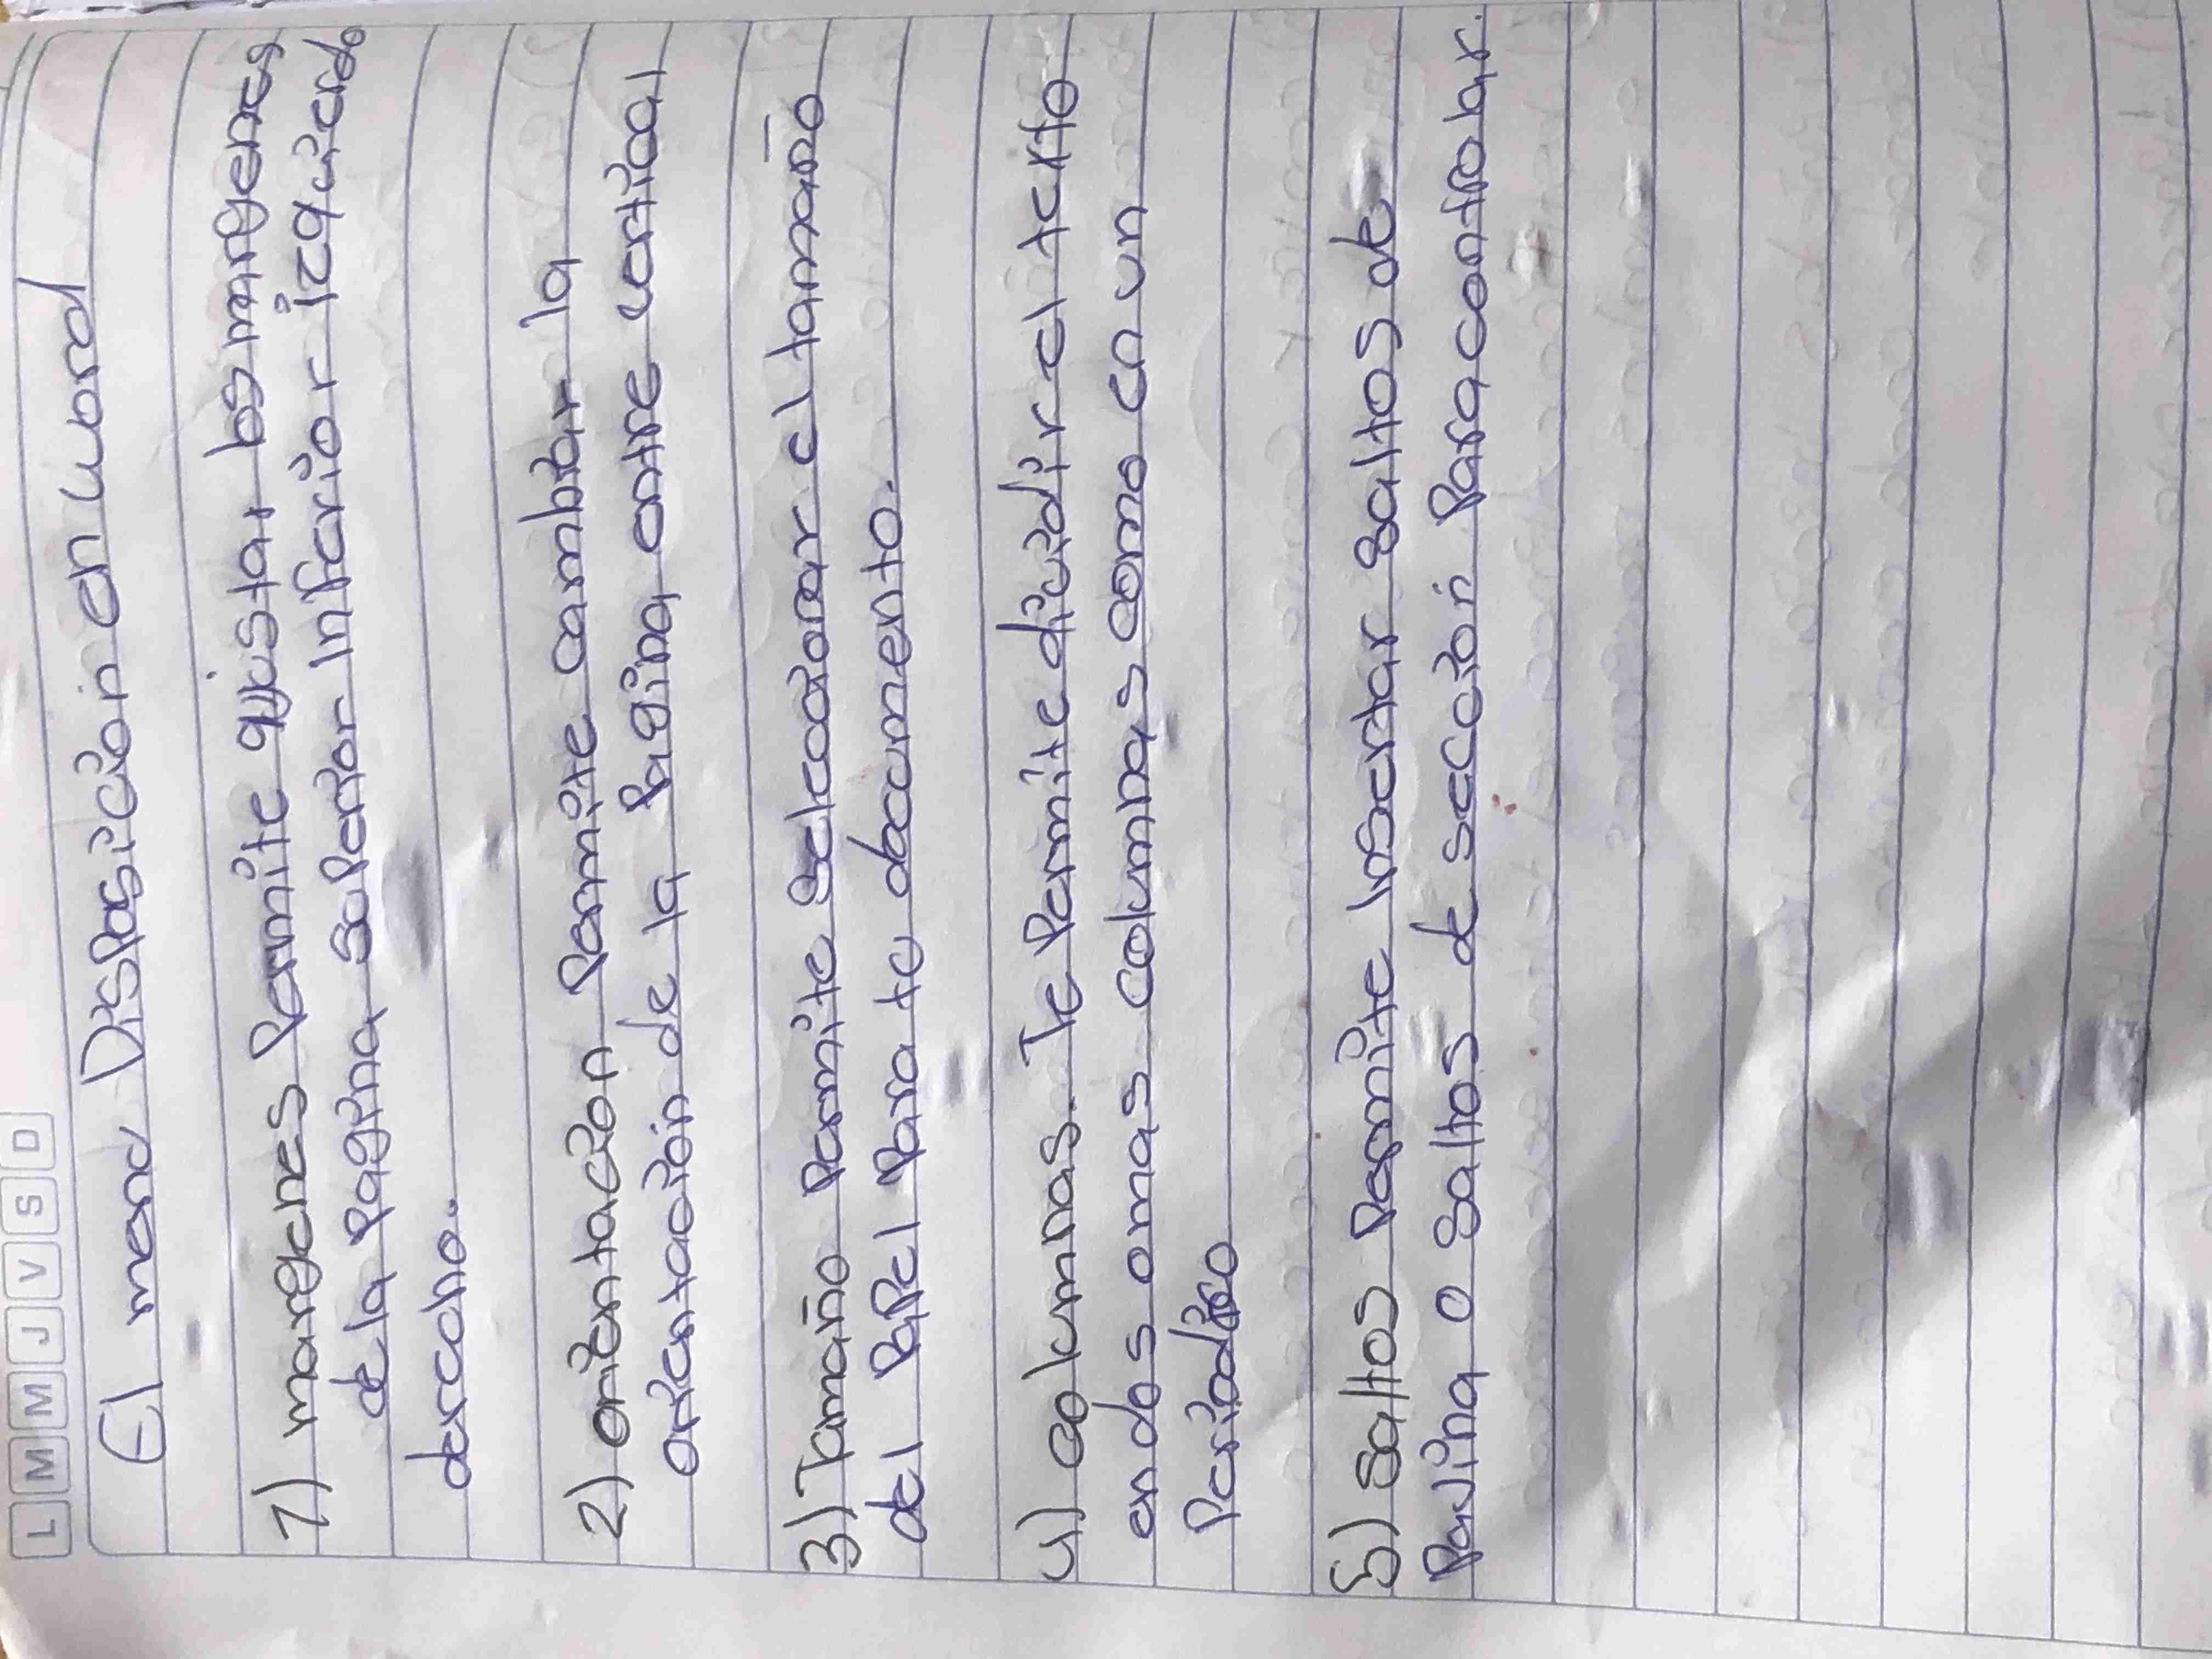 L M M J V S D
El menu Disposición en word
1) margenes Permite ajustar los margenes
de la Pagina superior inferior izquierdo
derecho.
2) orientacion Permite cambiar la
orientación de la Pagina entre vertical
3) Tamaño Permite seleccionar el tamaño
del Papel Para tu documento.
4) columnas. Te Permite dividir el texto
en dos o mas columnas como en un
Periodico
5) saltos Permite insertar saltos de
Pagina o saltos de sección Para controlar.